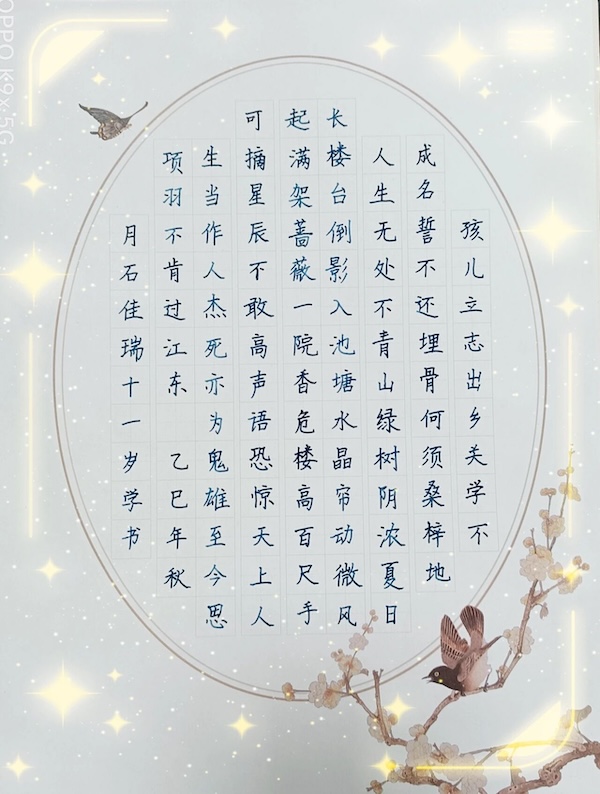 孩儿立志出乡关学不
成名誓不还埋骨何须桑梓地
人生无处不青山绿树阴浓夏日
长楼台倒影入池塘水晶帘动微风
起满架蔷薇一院香危楼高百尺手
可摘星辰不敢高声语恐惊天上人
生当作人杰死亦为鬼雄至今思
项羽不肯过江东 乙巳年秋
月石佳瑞十一岁学书
OPPO K9x 5G